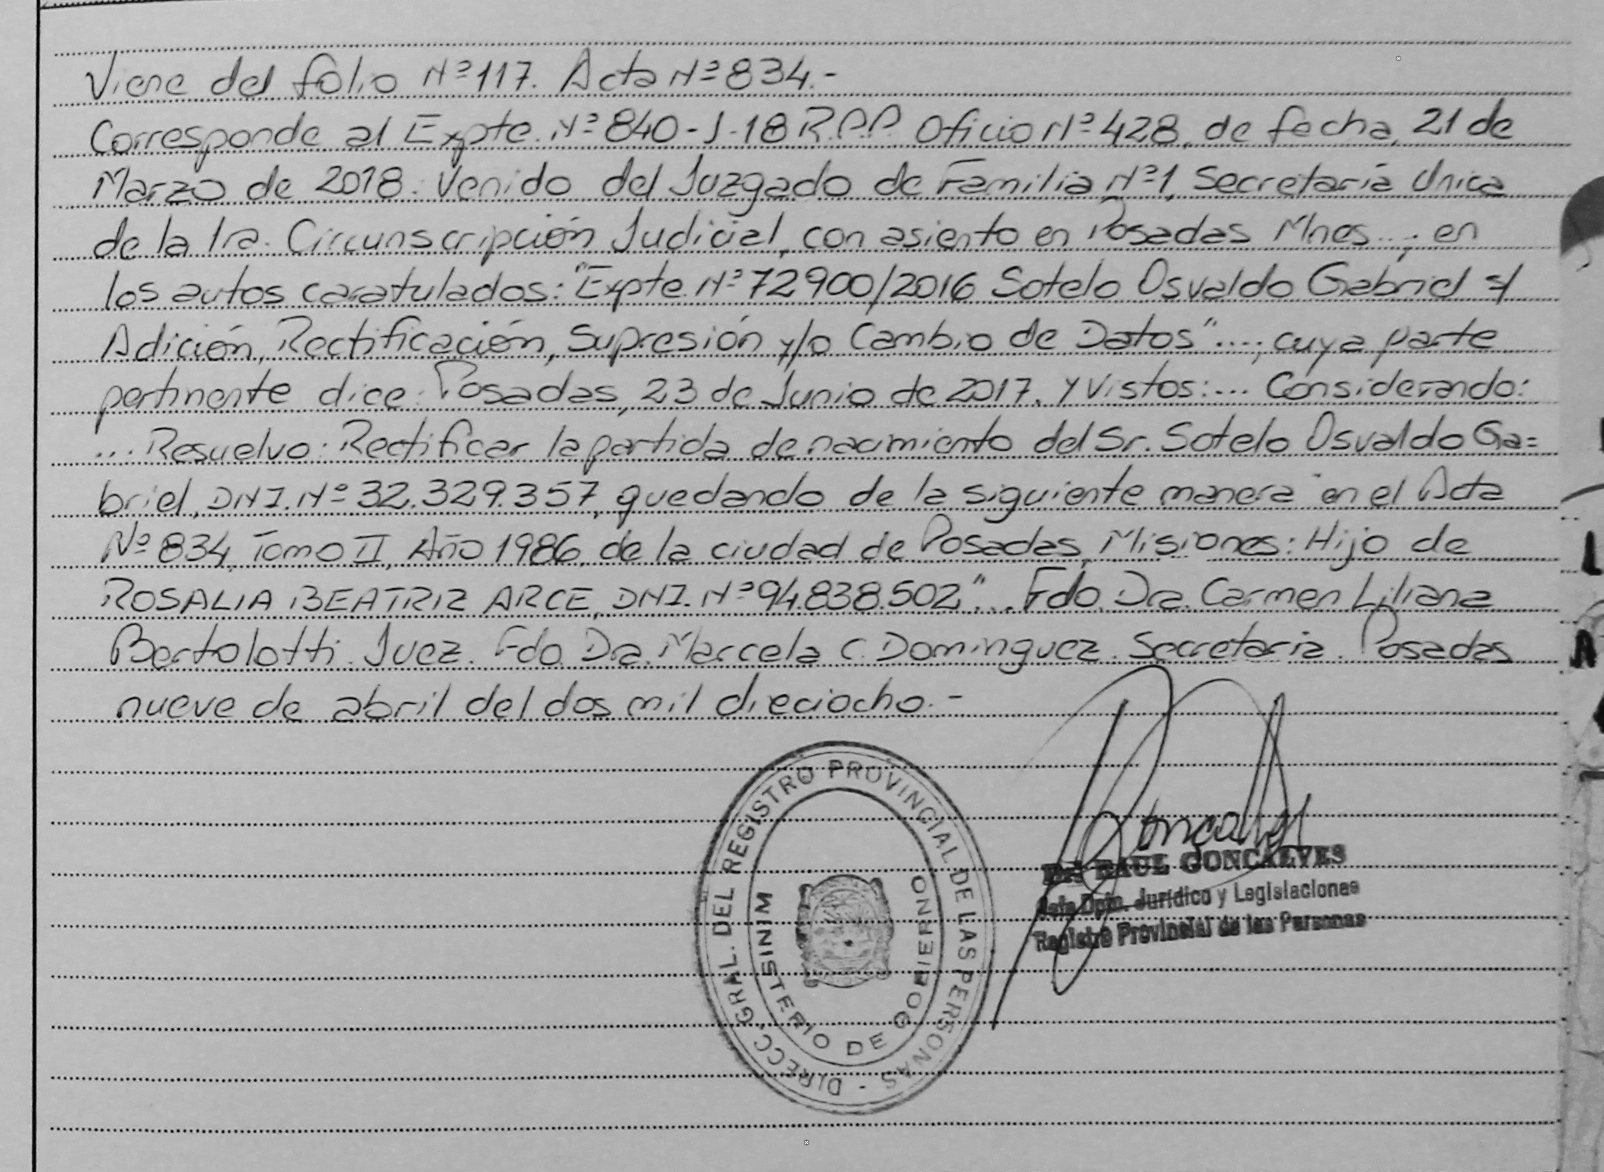 Viene del folio Nº 117. Acta Nº 834.-
Corresponde al Expte. Nº 840-J-18 R.P.P. Oficio Nº 428, de fecha, 21 de
Marzo de 2018. Venido del Juzgado de Familia Nº1, Secretaría Única
de la 1ra. Circunscripción Judicial, con asiento en Posadas Mnes...; en
los autos caratulados: "Expte. Nº 72900/2016 Sotelo Osvaldo Gabriel s/
Adición, Rectificación, Supresión y/o Cambio de Datos"...; cuya parte
pertinente dice: Posadas, 23 de Junio de 2017. Y Vistos:... Considerando:
... Resuelvo: Rectificar la partida de nacimiento del Sr. Sotelo Osvaldo Ga=
briel, DNI. Nº 32.329.357, quedando de la siguiente manera "en el Acta
Nº 834, Tomo II, Año 1986, de la ciudad de Posadas, Misiones: Hijo de
ROSALIA BEATRIZ ARCE, DNI. Nº 94.838.502"... Fdo. Dra. Carmen Liliana
Bertolotti. Juez. Fdo. Dra. Marcela C. Dominguez. Secretaria. Posadas
nueve de abril del dos mil dieciocho.-
DIRECC. GRAL. DEL REGISTRO PROVINCIAL DE LAS PERSONAS -
MINISTERIO DE GOBIERNO
RAUL GONCALVES
Jefe Dpto. Jurídico y Legislaciones
Registro Provincial de las Personas